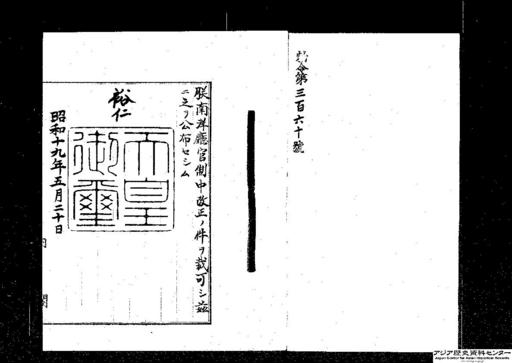 勅令第三百六十號
朕南洋廳官制中改正ノ件ヲ裁可シ茲
ニ之ヲ公布セシム
裕仁
天皇
御璽
昭和十九年五月二十日
内
閣
アジア歴史資料センター
Japan Center for Asian Historical Records